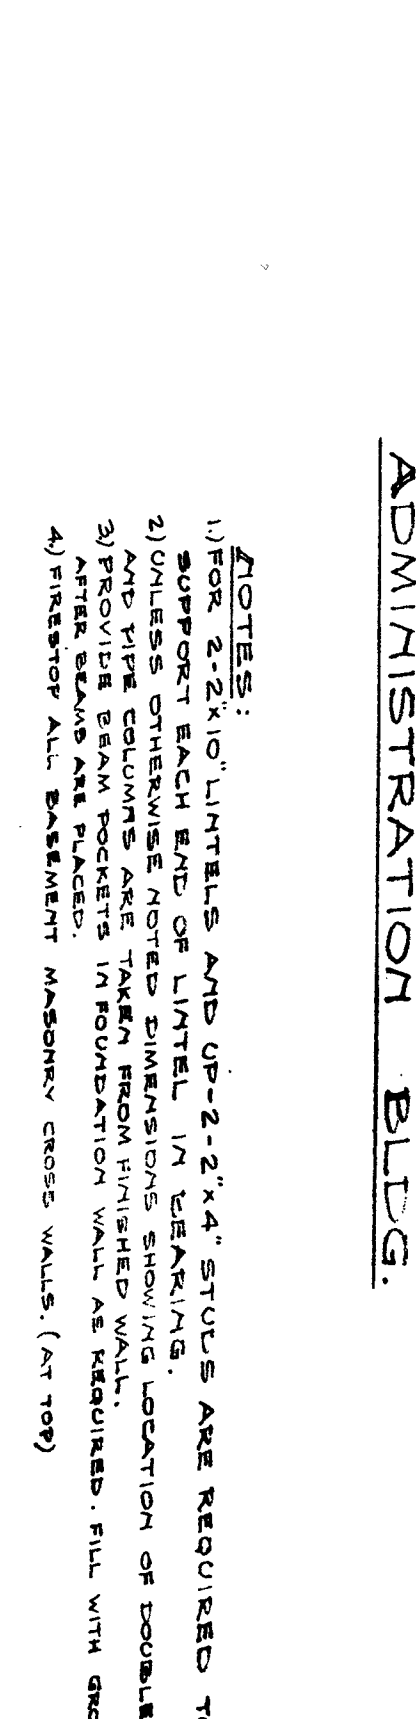 ADMINISTRATION BLDG.
NOTES:
1.) FOR 2-2"x10" LINTELS AND UP-2-2"x4" STUDS ARE REQUIRED TO
SUPPORT EACH END OF LINTEL IN BEARING.
2) UNLESS OTHERWISE NOTED DIMENSIONS SHOWING LOCATION OF DOUBLE
AND PIPE COLUMNS ARE TAKEN FROM FINISHED WALL.
3.) PROVIDE BEAM POCKETS IN FOUNDATION WALL AS REQUIRED. FILL WITH
AFTER BEAMS ARE PLACED.
4.) FIRESTOP ALL BASEMENT MASONRY CROSS WALLS. (AT TOP)